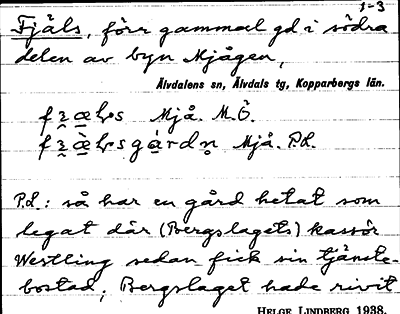 1-3
Fjäls, förr gammal gd i södra
delen av byn Mjågen,
Älvdalens sn, Älvdals tg, Kopparbergs län.
Mjå. M.Ö.
Mjå. P.L.
P.L.: så har en gård hetat som
legat där (Bergslagets) kassör
Westling sedan fick sin tjänste-
bostad; Bergslaget hade rivit
HELGE LINDBERG 1938.